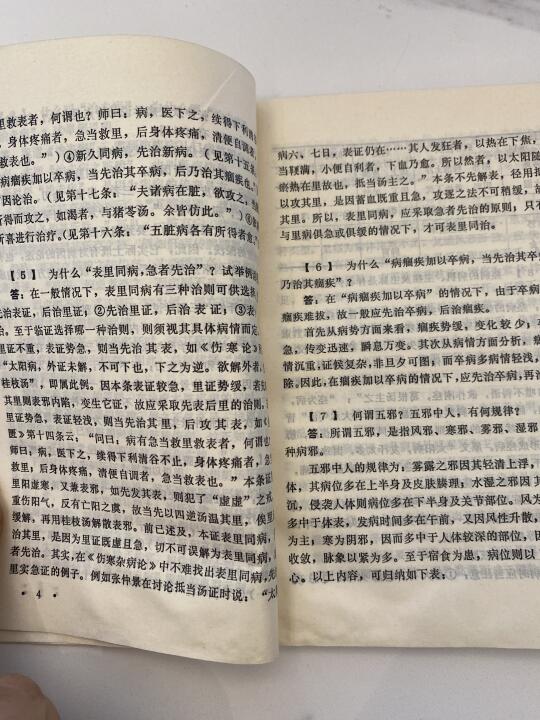 里救表者，何谓也？师曰：病，医下之，续得下利清
身体疼痛者，急当救里，后身体疼痛，清便自调者，
救表也。”）④新久同病，先治新病。（见第十五条
病痼疾加以卒病，当先治其卒病，后乃治其痼疾”）
因论治。（见第十七条，“夫诸病在脏，欲攻之，当
所得而攻之，如渴者，与猪苓汤。余皆仿此。”）⑥
所喜进行治疗。（见第十六条，“五脏病各有所得者愈
【5】 为什么“表里同病，急者先治”？试举例
答：在一般情况下，表里同病有三种治则可供选择
先治表证，后治里证；②先治里证，后治表证；③表
治。至于临证选择哪一种治则，则须视其具体病情而定
里证不重，表证势急，则当先治其表，如《伤寒论》
“太阳病，外证未解，不可下也，下之为逆。欲解外者，
桂枝汤”，即属此例。因本条表证较急，里证势缓，若
其里则表邪内陷，变生它证，故应采取先表后里的治则，
里证势急，表证轻浅，则当先治其里，后攻其表，如《
匮》第十四条云：“问曰：病有急当救里救表者，何谓也？
师曰：病，医下之，续得下利清谷不止，身体疼痛者，急当
救里；后身体疼痛，清便自调者，急当救表也。”本条证
里阳虚寒，又兼表邪，如先发其表，则犯了“虚虚”之戒
重伤阳气，反有亡阳之虞，故当先以四逆汤温其里，俟里
缓解，再用桂枝汤解散表邪。前已述及，本证表里同病，先
治其里，是因为里证既虚且急，切不可误解为表里同病，
者先治。其实，在《伤寒杂病论》中不难找出表里同病，先
里实急证的例子。例如张仲景在讨论抵当汤证时说：“太
· 4 ·
病六、七日，表证仍在……其人发狂者，以热在下焦，
当鞕满，小便自利者，下血乃愈。所以然者，以太阳随
瘀热在里故也，抵当汤主之。”本条不先解表，径用抵
攻其里，是因蓄血既重且急，攻逐之法不可稍缓，故
其里。所以，表里同病，应采取急者先治的原则，只
与里病俱急或俱缓的情况下，才可表里同治。
【6】 为什么“病痼疾加以卒病，当先治其卒
乃治其痼疾”？
答：在“病痼疾加以卒病”的情况下，由于卒病
痼疾难拔，故一般应先治卒病，后治痼疾。
首先从病势方面来看，痼疾势缓，变化较少；卒
急，传变迅速，瞬息万变。其次从病情方面分析，痼
情沉重，证候复杂，非旦夕可图；而卒病多病情轻浅，
除。因此，在痼疾加卒病的情况下，应先治卒病，再治
【7】 何谓五邪？五邪中人，有何规律？
答：所谓五邪，是指风邪、寒邪、雾邪、湿邪
种病邪。
五邪中人的规律为：雾露之邪因其轻清上浮，
体，其病位多在上半身及皮肤腠理；水湿之邪因其
沉，侵袭人体则病位多在下半身及关节部位。风
多中于体表，发病时间多在午前，又因风性升散，
为主；寒为阴邪，因而多中于人体较深的部位，因
收敛，脉象以紧为多。至于宿食为患，病位则以
心。以上内容，可归纳如下表：